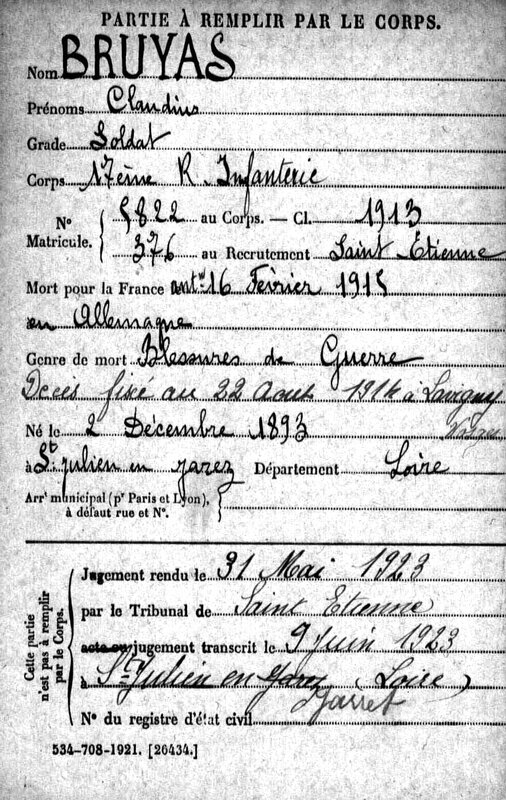 PARTIE À REMPLIR PAR LE CORPS.
Nom BRUYAS
Prénoms Claudius
Grade Soldat
Corps 17ème R. Infanterie
N° Matricule. 5822 au Corps. — Cl. 1913
376 au Recrutement Saint Etienne
Mort pour la France le antr 16 Février 1915
en Allemagne
Genre de mort Blessures de Guerre
Décès fixé au 22 Aout 1914 à Lavigny
Vosges
Né le 2 Décembre 1893
à St Julien en Jarez Département Loire
Arrt municipal (pr Paris et Lyon),
à défaut rue et N°.
Cette partie n'est pas à remplir par le Corps.
Jugement rendu le 31 Mai 1923
par le Tribunal de Saint Etienne
acte ou jugement transcrit le 9 Juin 1923
à St Julien en Jarez (Loire)
Jarret
N° du registre d'état civil
534-708-1921. [26434.]